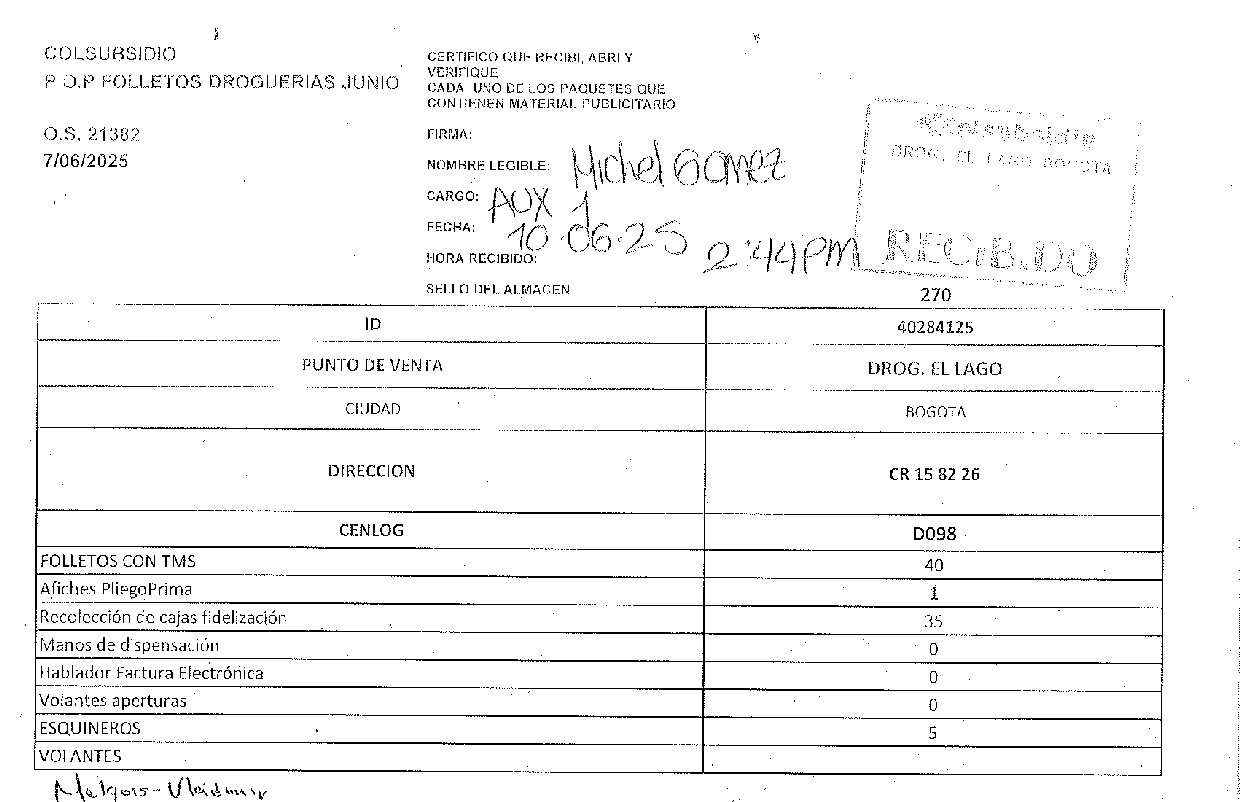 COLSUBSIDIO
P.O.P FOLLETOS DROGUERIAS JUNIO
O.S. 21382
7/06/2025
CERTIFICO QUE RECIBI, ABRI Y
VERIFIQUE
CADA UNO DE LOS PAQUETES QUE
CONTIENEN MATERIAL PUBLICITARIO
FIRMA:
NOMBRE LEGIBLE: Michel Gomez
CARGO: AUX 1
FECHA: 10.06.25
HORA RECIBIDO: 2:44 PM
SELLO DEL ALMACEN
Colsubsidio
DROG. EL LAGO BOGOTA
RECIBIDO
270
ID 40284125
PUNTO DE VENTA DROG. EL LAGO
CIUDAD BOGOTA
DIRECCION CR 15 82 26
CENLOG D098
FOLLETOS CON TMS 40
Afiches PliegoPrima 1
Recolección de cajas fidelización 35
Manos de dispensación 0
Hablador Factura Electrónica 0
Volantes aperturas 0
ESQUINEROS 5
VOLANTES